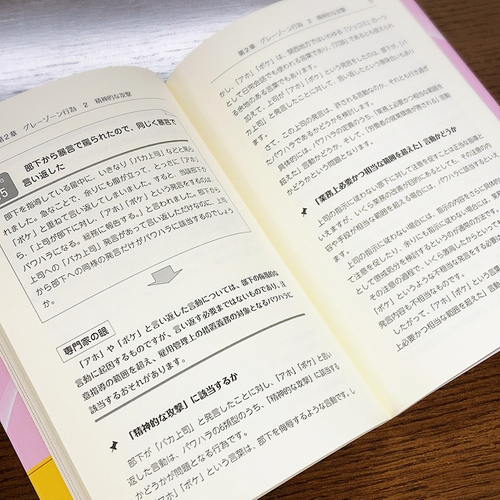 第2章　グレーゾーン行為　2　精神的な攻撃
5
部下から暴言で罵られたので、同じく暴言で
言い返した
部下を指導している最中に、いきなり「バカ上司」などと罵ら
れました。急なことで、余りにも腹が立って、とっさに「アホ」
「ボケ」と重ねて言い返してしまいました。すると、当該部下か
ら、「上司が部下に対し、「アホ」「ボケ」という発言をするのは、
パワハラになる。総務に報告する。」と言われました。部下から
上司への「バカ上司」発言があって言い返しただけなのに、上司
から部下への同様の発言だけがパワハラに該当するのでしょう
か。
専門家の眼
「アホ」や「ボケ」と言い返した言動については、部下の侮辱的な
言動に起因するものですが、言い返す必要まではないものであり、注
意指導の範囲を超え、雇用管理上の措置義務の対象となるパワハラに
該当するおそれがあります。
「精神的な攻撃」に該当するか
部下が「バカ上司」と発言したことに対し、「アホ」「ボケ」と言い
返した言動は、パワハラの6類型のうち、「精神的な攻撃」に該当する
かどうかが問題となる行為です。
「アホ」「ボケ」という言葉は、部下を侮辱するような言動です。し
第2章　グレーゾーン行為　2　精神的な攻撃
かし、「アホ」「ボケ」は、関西地方ではいわゆる「ツッコミ」の一つ
として日常会話でも使われる言葉であり、「冗談」であるとも捉えられ
る余地のある言葉でもあります。
加えて、上司が「アホ」「ボケ」という発言をしたのは、部下が、「バ
カ上司」と発言したことに対して、言い返したという事情がありま
す。
さて、この上司の発言は、許される言動なのか、それとも行き過ぎ
たパワハラであるかどうかが検討します。
具体的には、パワハラの定義のうち、「業務上必要かつ相当な範囲を
超えた」言動かどうか、そして、「労働者の就業環境が害される」言動
かどうかという問題となります。
「業務上必要かつ相当な範囲を超えた」言動かどうか
上司の指示に従わない部下に対して注意を促すことは正当な指導と
いえますが、いくら業務の改善が目的にあるとしても、その注意の内
容や手段が相当な範囲を超える場合には、パワハラに該当するといえ